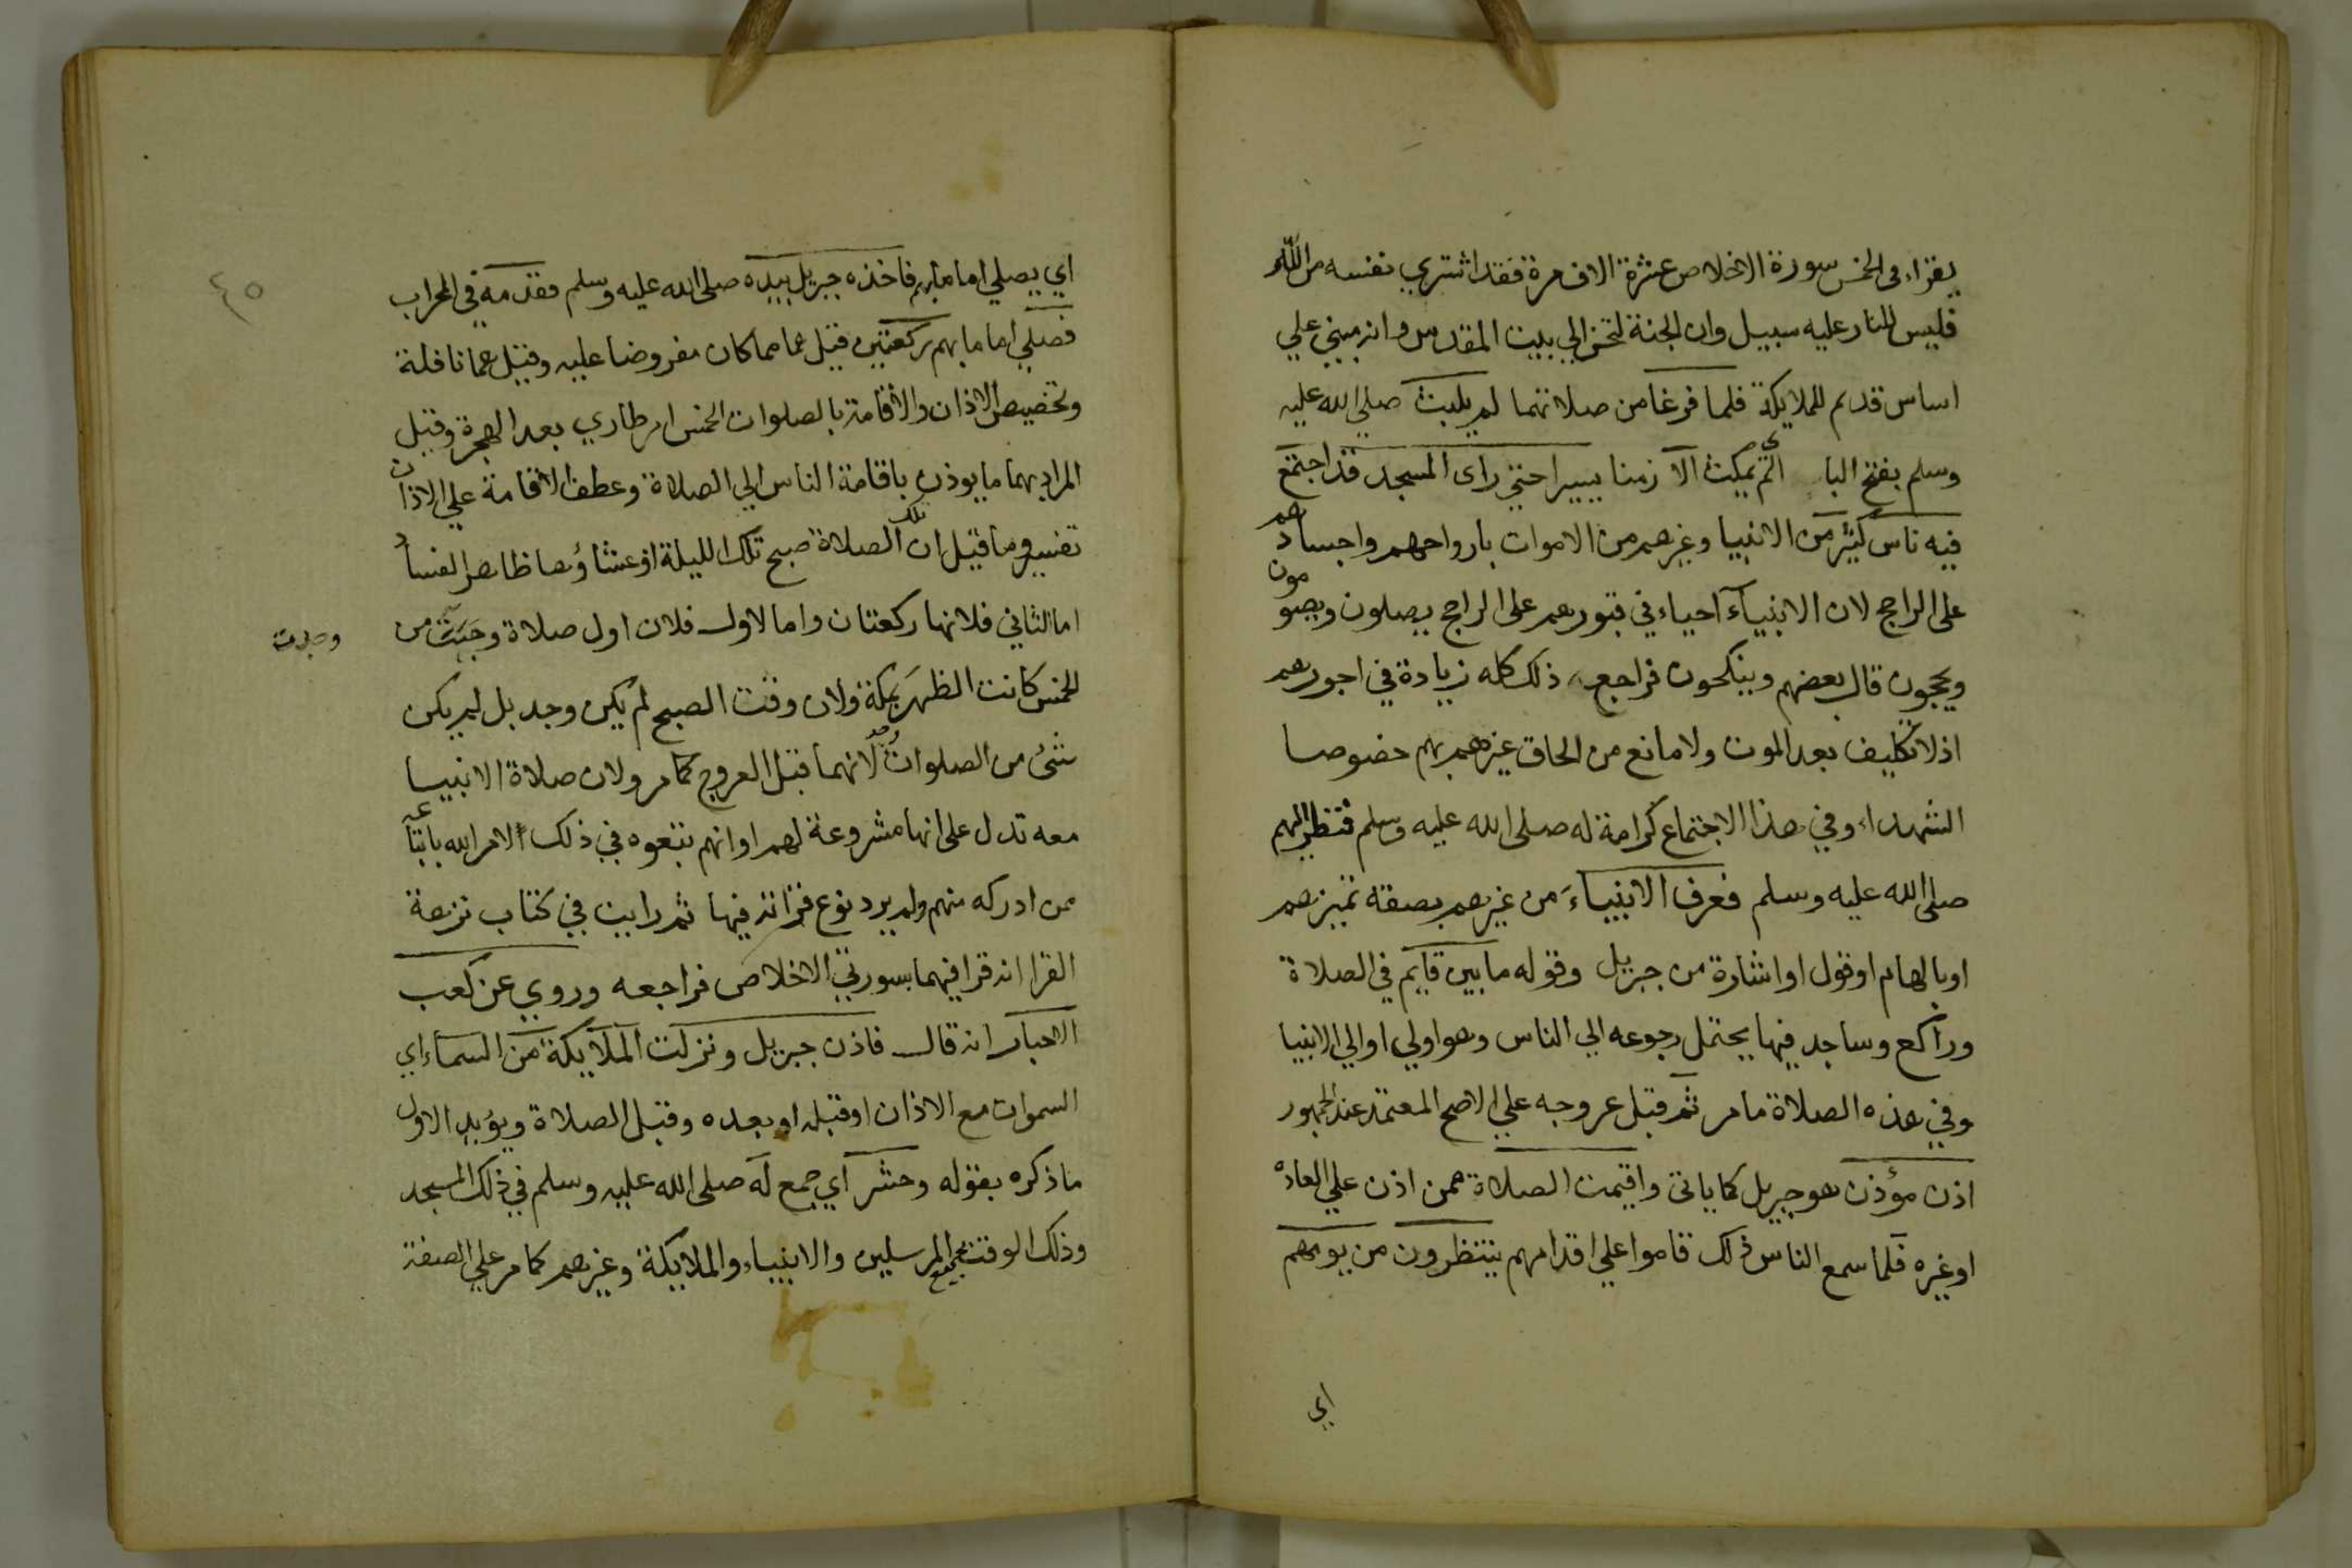 يقراء في الخمس سورة الاخلاص عشرة الاف مرة فقد اشتري نفسه من الله
فليس للنار عليه سبيل وان الجنة لتحن الي بيت المقدس وانه مبني علي
اساس قديم للملايكة فلما فرغا من صلاتهما لم يلبث صلي الله عليه
وسلم بفتح البا اي لم يمكث الا زمنا يسيرا حتي راى المسجد قد اجتمع
فيه ناس كثير من الانبيا وغيرهم من الاموات بارواحهم واجسادهم
على الراجح لان الانبياء احياء في قبورهم على الراجح يصلون ويصومون
ويحجون قال بعضهم وينكحون فراجعه ذلك كله زيادة في اجورهم
اذ لا تكليف بعد الموت ولا مانع من الحاق غيرهم بهم خصوصا
الشهداء وفي هذا الاجتماع كرامة له صلى الله عليه وسلم فنظر اليهم
صلى الله عليه وسلم فعرف الانبياء من غيرهم بصفة تميزهم
او بالهام او قول او اشارة من جبريل وقوله ما بين قايم في الصلاة
وراكع وساجد فيها يحتمل رجوعه الي الناس وهو اولي او الي الانبيا
وفي هذه الصلاة ما مر ثم قبل عروجه علي الاصح المعتمد عند الجمهور
اذن مؤذن هو جبريل كما ياتي واقيمت الصلاة ممن اذن علي العادة
او غيره فلما سمع الناس ذلك قاموا علي اقدامهم ينتظرون من يومهم
اي
٤٥
اي يصلي اماما بهم فاخذه جبريل بيده صلى الله عليه وسلم فقدمه في المحراب
فصلي اماما بهم ركعتين قيل هما مما كان مفروضا عليه وقيل هما نافلة
وتخصيص الاذان والاقامة بالصلوات الخمس امر طاري بعد الهجرة وقيل
المراد بهما ما يوذن باقامة الناس الي الصلاة وعطف الاقامة علي الاذان
تفسير وما قيل ان تلك الصلاة صبح تلك الليلة او عشاؤها ظاهر الفساد
اما الثاني فلانها ركعتان واما الاول فلان اول صلاة وجبت من
وجبت
الخمس كانت الظهر بمكة ولان وقت الصبح لم يكن وجد بل لم يكن
شئ من الصلوات وجد لانهما قبل العروج كما مر ولان صلاة الانبيا
معه تدل على انها مشروعة لهم او انهم تبعوه في ذلك لامر الله باتباعه
من ادركه منهم ولم يرد نوع قراته فيها ثم رايت في كتاب نزهة
القرا انه قرا فيهما بسورتي الاخلاص فراجعه وروي عن كعب
الاحبار انه قال فاذن جبريل ونزلت الملايكة من السماء اي
السموات مع الاذان او قبله او بعده وقبل الصلاة ويؤيد الاول
ما ذكره بقوله وحشر اي جمع له صلى الله عليه وسلم في ذلك المسجد
وذلك الوقت جميع المرسلين والانبياء والملايكة وغيرهم كما مر علي الصفة